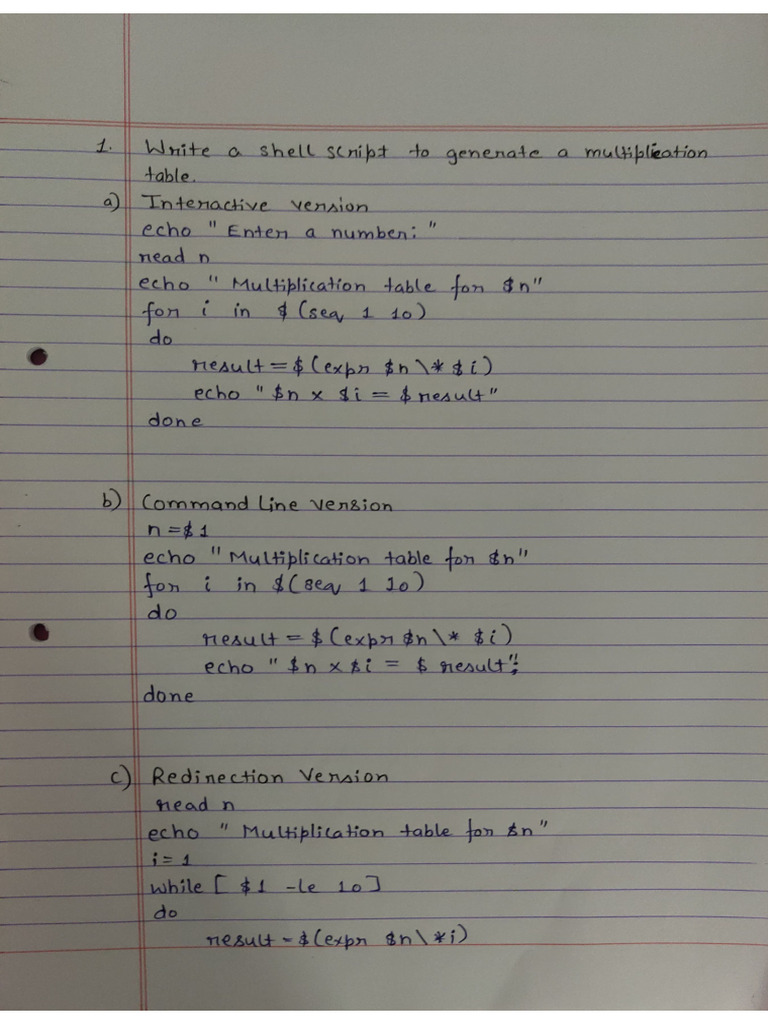 1. Write a shell script to generate a multiplication
table.
a) Interactive version
echo " Enter a number: "
read n
echo " Multiplication table for $n"
for i in $(seq 1 10)
do
result=$(expr $n \* $i)
echo " $n x $i = $result"
done
b) Command Line version
n=$1
echo " Multiplication table for $n"
for i in $(seq 1 10)
do
result=$(expr $n \* $i)
echo " $n x $i = $ result";
done
c) Redirection Version
read n
echo " Multiplication table for $n"
i=1
while [ $1 -le 10]
do
result=$(expr $n \*i)